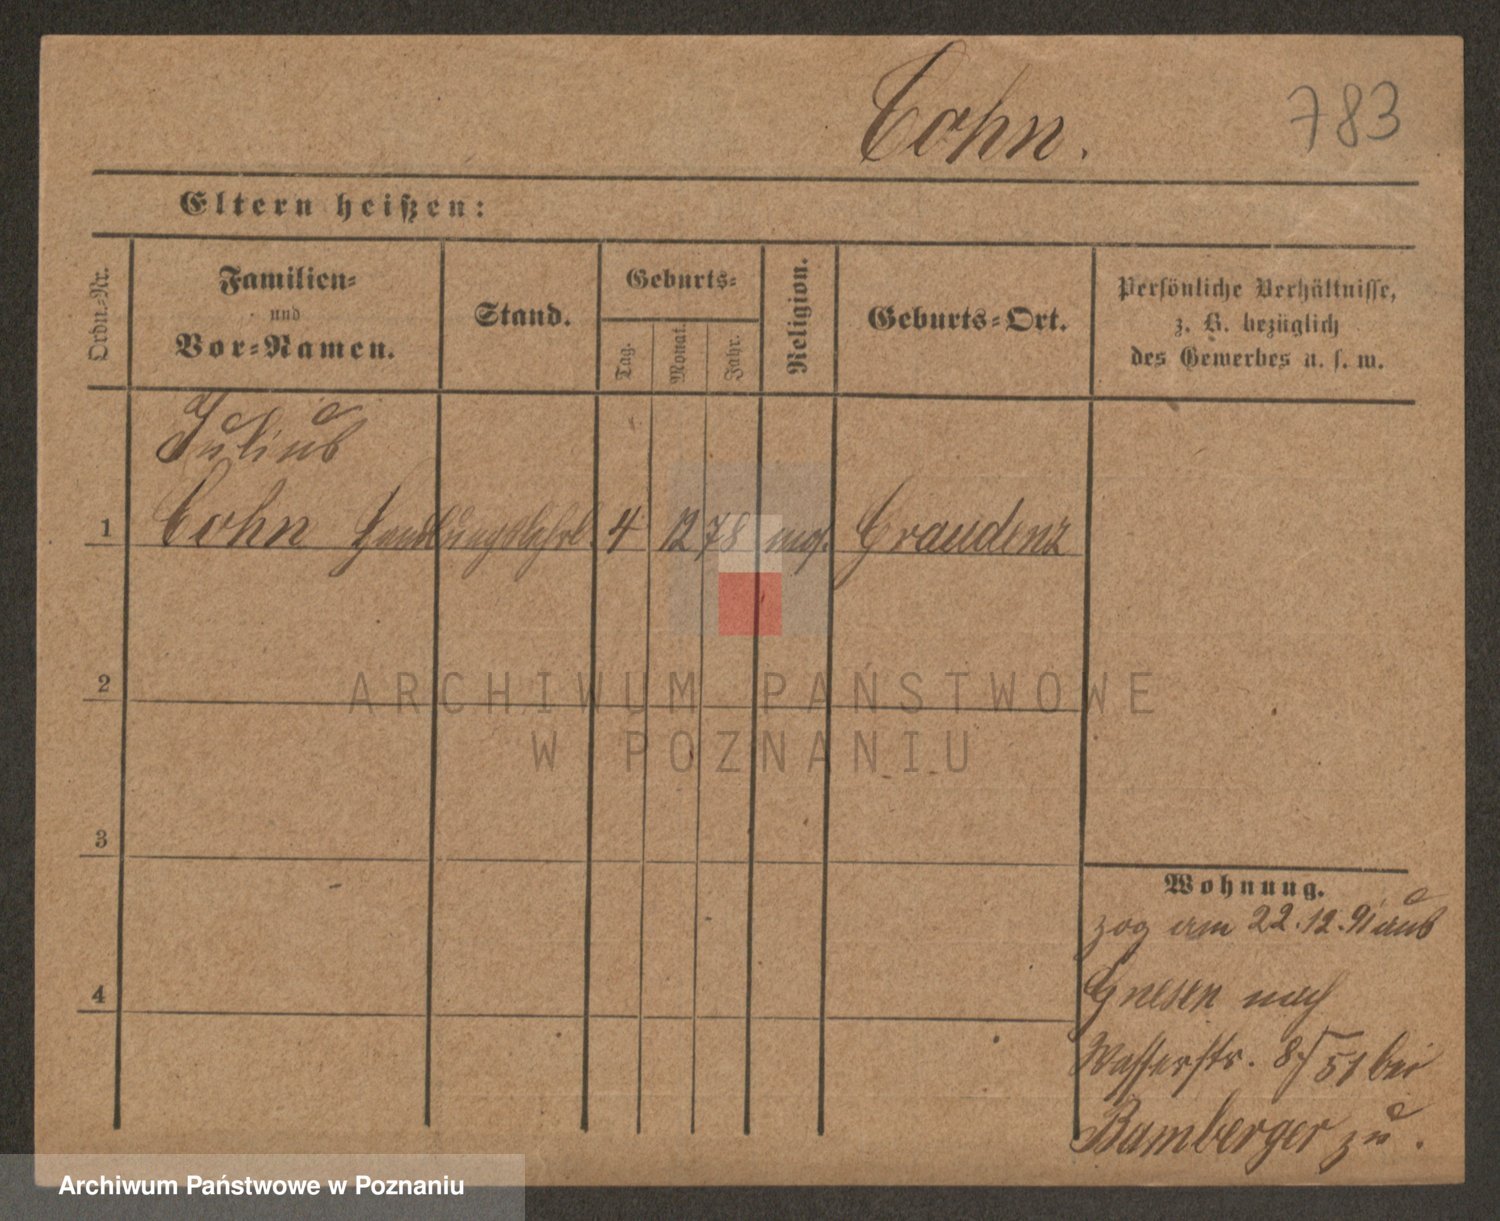 Cohn.
783
Eltern heißen:
Ordn.-Nr.
Familien-
und
Vor-Namen.
Stand.
Geburts-
Tag.
Monat.
Jahr.
Religion.
Geburts-Ort.
Persönliche Verhältnisse,
z. B. bezüglich
des Gewerbes u. s. w.
Julius
1 Cohn Handlungslehrl. 4 12 78 mos. Graudenz
2
3
4
Wohnung.
zog am 22.12.91 aus
Gnesen nach
Wasserstr. 8/51 bei
Bamberger zu.
ARCHIWUM PAŃSTWOWE
W POZNANIU
Archiwum Państwowe w Poznaniu